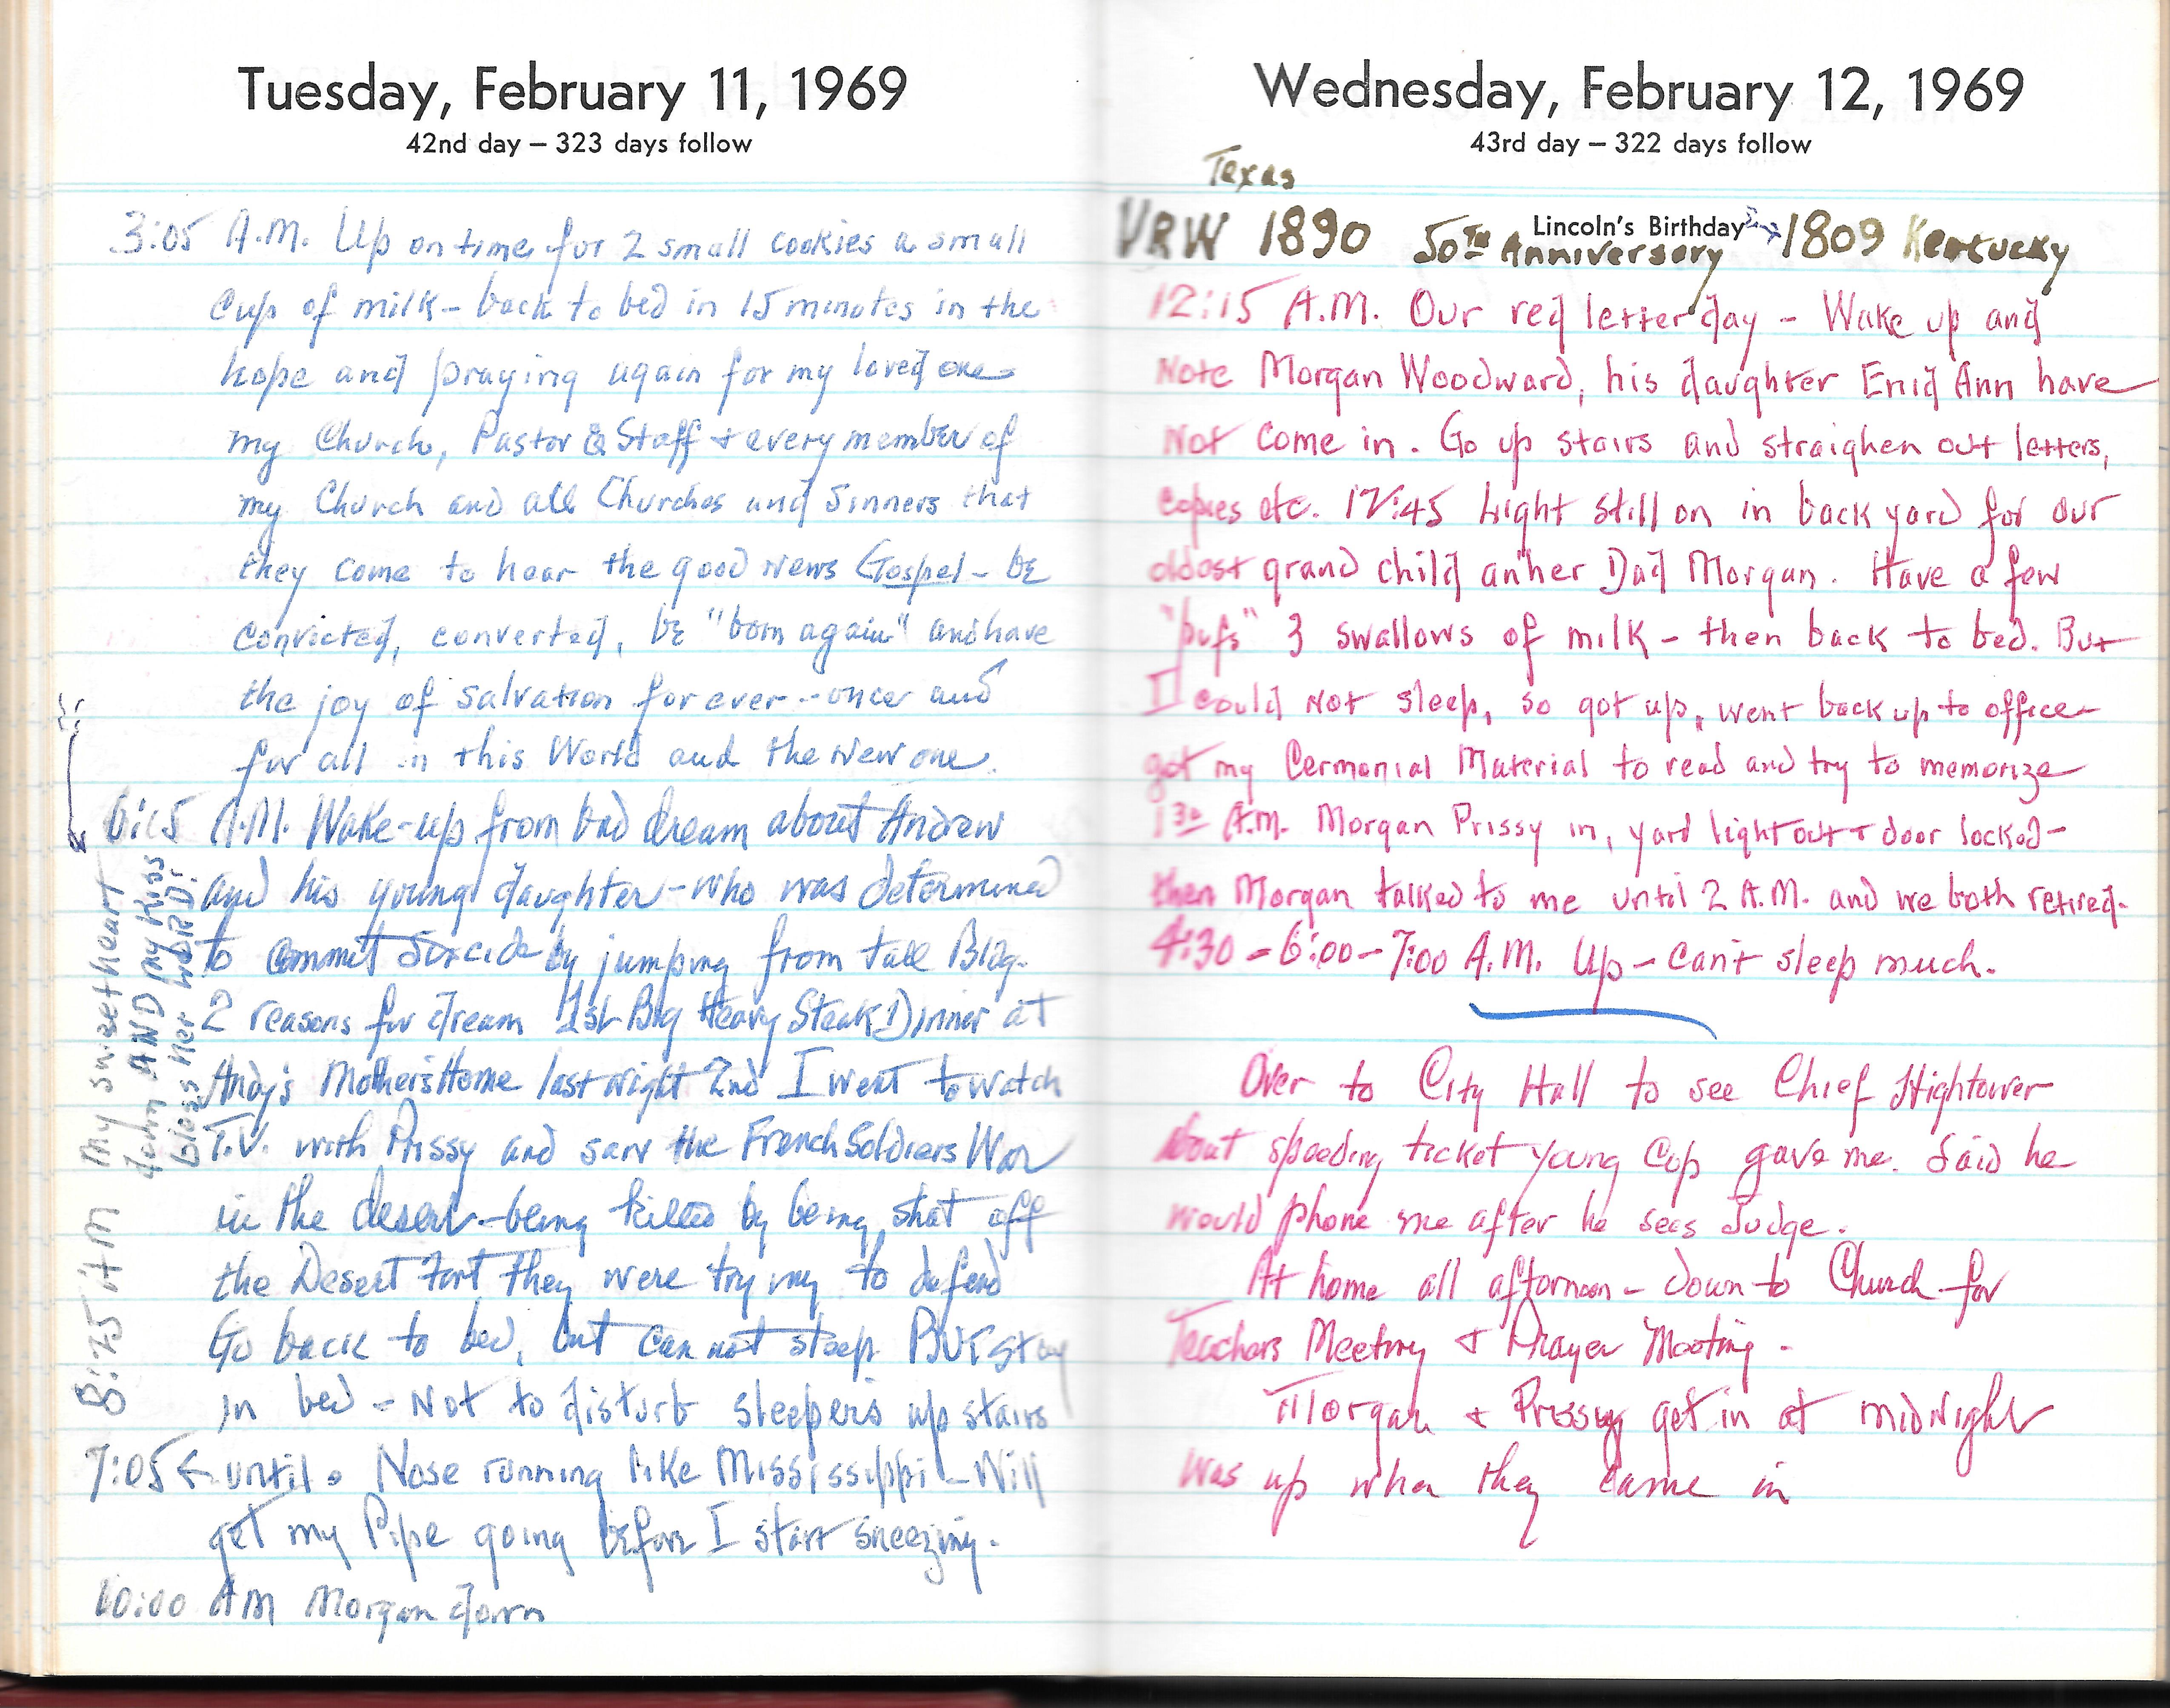 Tuesday, February 11, 1969
42nd day – 323 days follow
3:05 A.M. Up on time for 2 small cookies a small
cup of milk – back to bed in 15 minutes in the
hope and praying again for my loved one
my Church, Pastor & Staff + every member of
my Church and all Churches and Sinners that
they come to hear the good news Gospel – be
convicted, converted, be "born again" and have
the joy of salvation forever -- once and
for all in this World and the New one.
6:15 A.M. Wake-up from bad dream about Andrew
and his young daughter – who was determined
to commit by jumping from tall Bldg.
2 reasons for dream 1st Big Heavy Steak Dinner at
Andy's Mother's Home last night 2nd I went to watch
T.V. with Prissy and saw the French Soldiers War
in the desert – being killed by being shot off
the Desert Fort they were trying to defend
Go back to bed, but can not sleep BUT stay
in bed – Not to disturb sleepers up stairs
7:05 ← until. Nose running like Mississippi – Will
get my Pipe going before I start sneezing.
10:00 AM Morgan down
8:25 AM My sweetheart
down AND my Kiss
bless her WORD!
Wednesday, February 12, 1969
43rd day – 322 days follow
Texas
VRW 1890 50th Anniversary Lincoln's Birthday → 1809 Kentucky
12:15 A.M. Our red letter day – Wake up and
Note Morgan Woodward, his daughter Enid Ann have
Not come in. Go up stairs and straighen out letters,
copies etc. 12:45 Light still on in back yard for our
oldest grand child an her Dad Morgan. Have a few
"pufs" 3 swallows of milk – then back to bed. But
I could Not sleep, so got up, went back up to office
got my Cermonial Material to read and try to memorize
1 30 A.M. Morgan Prissy in, yard light out + door locked –
then Morgan talked to me until 2 A.M. and we both retired.
4:30 – 6:00 – 7:00 A.M. Up – can't sleep much.
Over to City Hall to see Chief Hightower
about speeding ticket young Cop gave me. Said he
would phone me after he sees Judge.
At home all afternoon – down to Church for
Teachers Meeting & Prayer Meeting.
Morgan & Prissy get in at midnight
Was up when they came in